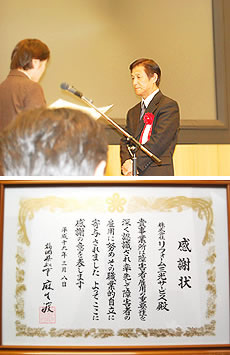 感謝状
株式会社
リフォーム三光サービス殿
貴事業所は障害者雇用の重要性を
深く認識され率先して障害者の
雇用に努めその職業的自立に
寄与されました よってここに
感謝の意を表します
平成十九年三月八日
福岡県知事 麻生渡